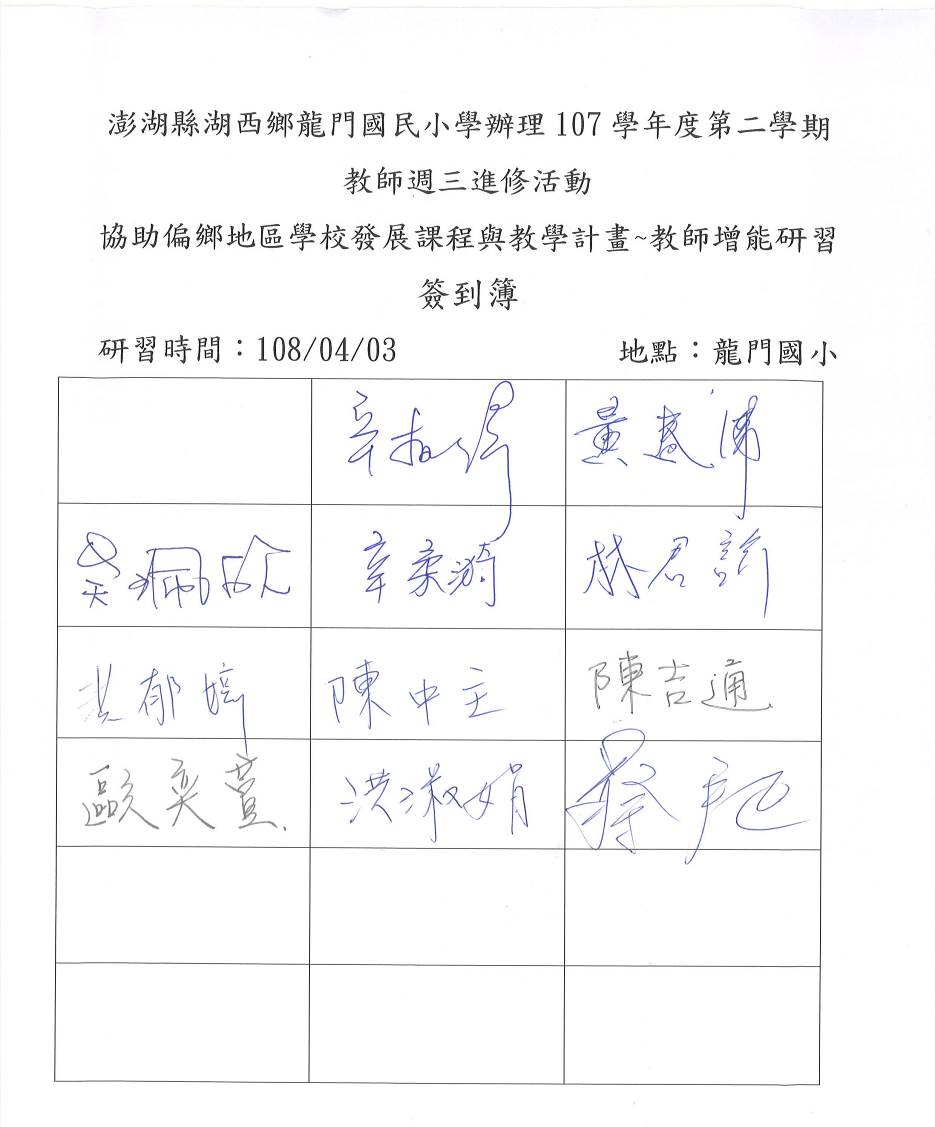 澎湖縣湖西鄉龍門國民小學辦理 107 學年度第二學期
教師週三進修活動
協助偏鄉地區學校發展課程與教學計畫~教師增能研習
簽到簿
研習時間：108/04/03 地點：龍門國小
辛柔漪 林君
郁 陳中主 陳吉通
歐奕萱 洪淑娟 蔡